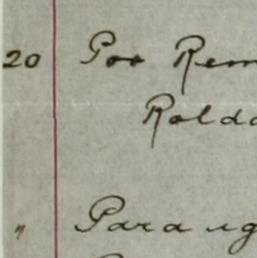 20 Por Rem
Rold
" Para ig